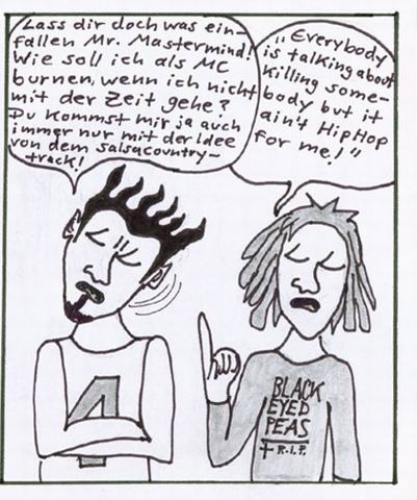 Lass dir doch was ein-
fallen Mr. Mastermind!
Wie soll ich als MC
burnen, wenn ich nicht
mit der Zeit gehe?
Du kommst mir ja auch
immer nur mit der Idee
von dem Salsacountry-
track!
"Everybody
is talking about
killing some-
body but it
ain't HipHop
for me!"
4
BLACK
EYED
PEAS
† R.I.P.